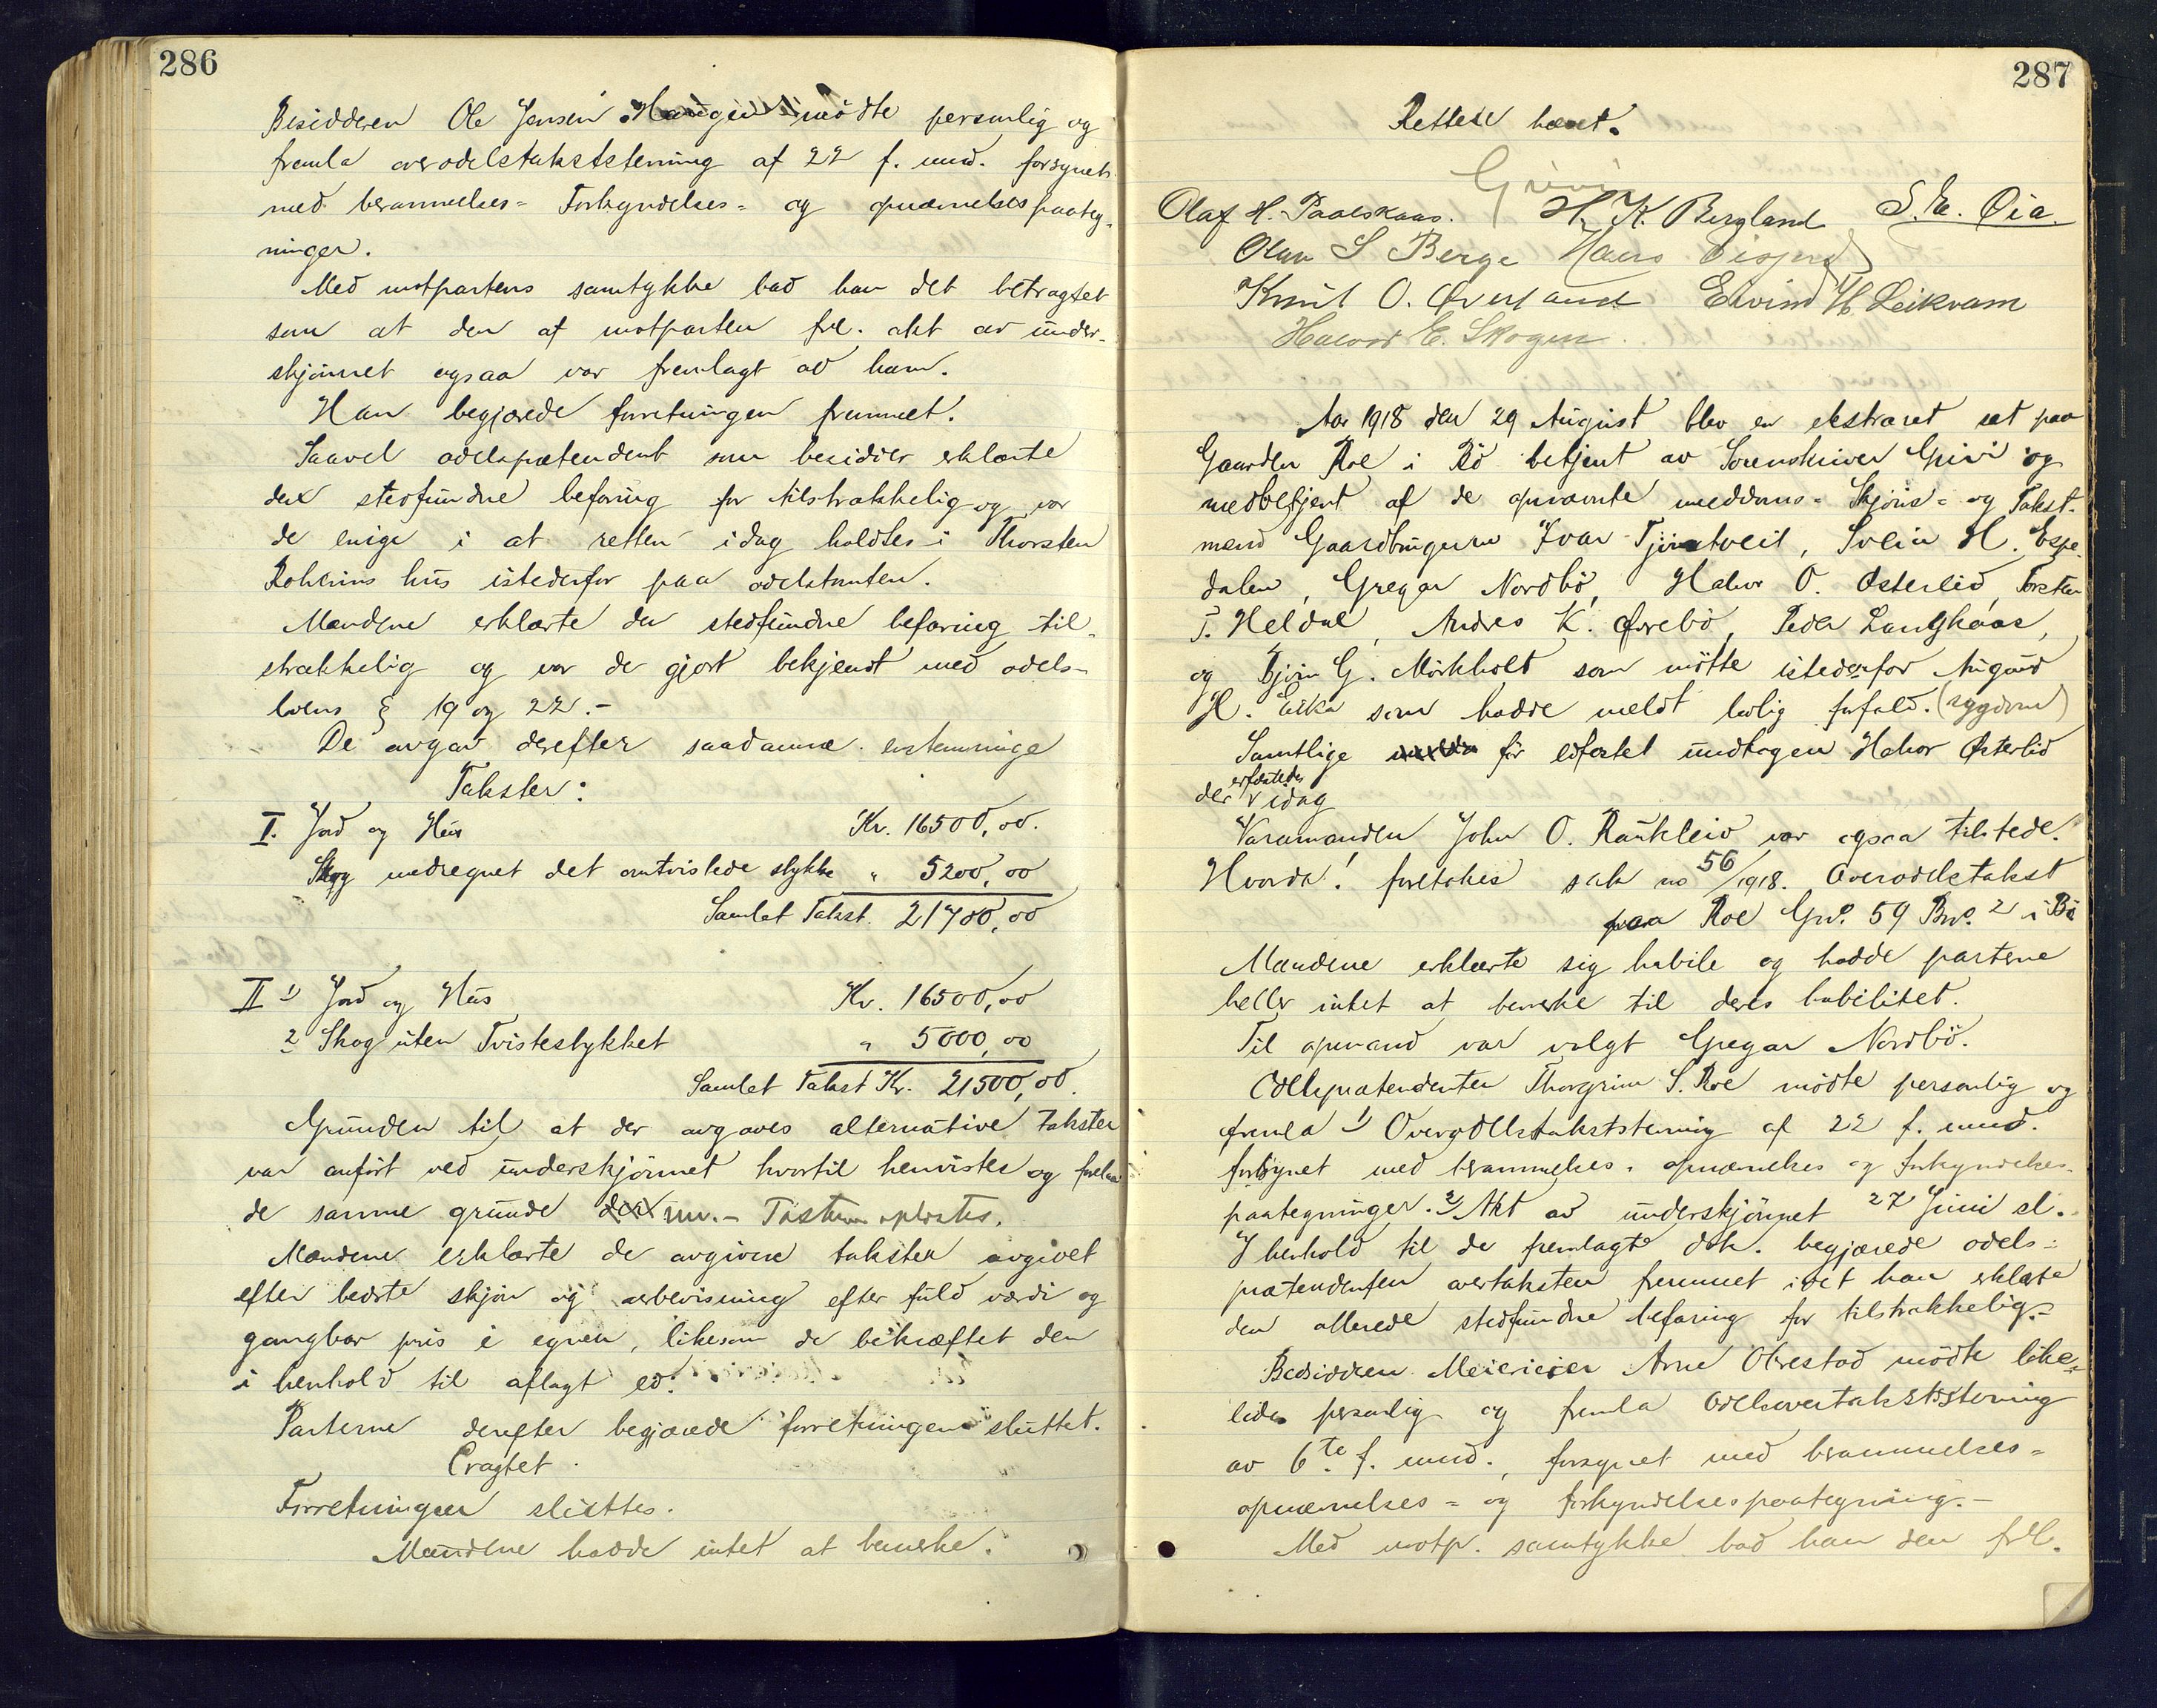 286
Besidderen Ole Jensen Haugen mödte personlig og
fremla overodelstakststevning af 22 f. mnd. forsynet
med berammelses- Forkyndelses- og opnævnelsespaateg-
ninger.
Med motpartens samtykke bad han det betragtet
som at den af motparten frl. akt av under-
skjønnet ogsaa var fremlagt av ham.
Han begjærede forretningen fremmet.
Saavel odelspretendent som besidder erklærte
den stedfundne befaring for tilstrækkelig og var
de enige i at retten idag holdtes i Thorsten
hus istedenfor paa odelstomten.
Mændene erklærte den stedfundne befaring til-
strækkelig og var de gjort bekjendt med odels-
lovens § 19 og 22.-
De avgav derefter saadanne enstemmige
Takster:
I. Jord og Hus Kr. 16500,00.
Skog medregnet det omtvistede stykke " 5200,00
Samlet Takst 21700,00
II 1) Jord og Hus Kr. 16500,00
2 Skog uten Tvistestykket " 5000,00
Samlet Takst Kr. 21500,00.
Grunden til at der avgaves alternative takster
var anført ved underskjönnet hvortil henvistes og forelaa
de samme grunde nu.-
Mændene erklærte de avgivne takster avgivet
efter bedste skjön og overbevisning efter fuld værdi og
gangbar pris i egnen, likesom de bekræftet den
i henhold til aflagt ed.
Parterne derefter begjærede forretningen sluttet.
Eragtet
Forretningen sluttes.
Mændene hadde intet at bemerke.
287
Retten hævet.
Grivi
Olaf H. Paalskaas. H. K. Bergland S. E. Öia.
Olav S Berge Hans
Knut O. Øverland Eivind H. Leikvam
Halvor E. Skogen.
Aar 1918 den 29 August blev en ekstraret sat paa
Gaarden Roe i Bö betjent av Sorenskriver Grivi og
medbetjent af de opnævnte meddoms- Skjöns- og Takst-
mænd Gaardbrugerne Ivar Tjönstveit, Svein H. Espe-
dalen, Gregar Nordbö, Halvor O. Østerlid, Torsten
T. Heldal, Andres K. Ørebö, Peder Langkaas,
og Björn G. Mörkholt som mötte istedenfor Augund
H. som hadde meldt lovlig forfald. (sygdom)
Samtlige för edfæstet undtagen Halvor Østerlid
der edfæstedes idag
Varamanden John O. Raukleiv var ogsaa tilstede.
Hvorda! foretokes sak no 56/1918. Overodelstakst
paa Roe Gno. 59 Bno. 2 i Bö
Mændene erklærte sig habile og hadde parterne
heller intet at bemerke til deres habilitet.
Til opmand var valgt Gregar Nordbö.
Odelspretendenten Thorgrim S. Roe mödte personlig og
fremla 1) Overodelstakststevning af 22 f. mnd.
forsynet med berammelses- opnævnelses og forkyndelses-
paategninger. 2) Akt av underskjönnet 27 Juni sl.
I henhold til de fremlagte dok. begjærede odels-
prætendenten overtaksten fremmet idet han erklærte
den allerede stedfundne befaring for tilstrækkelig.-
Besidderen Meierieier Arne Obrestad mödte like-
ledes personlig og fremla Odelsovertakststevning
av 6te f. mnd., forsynet med berammelses-
opnævnelses- og forkyndelsespaategning.-
Med motp. samtykke bad han den frl.